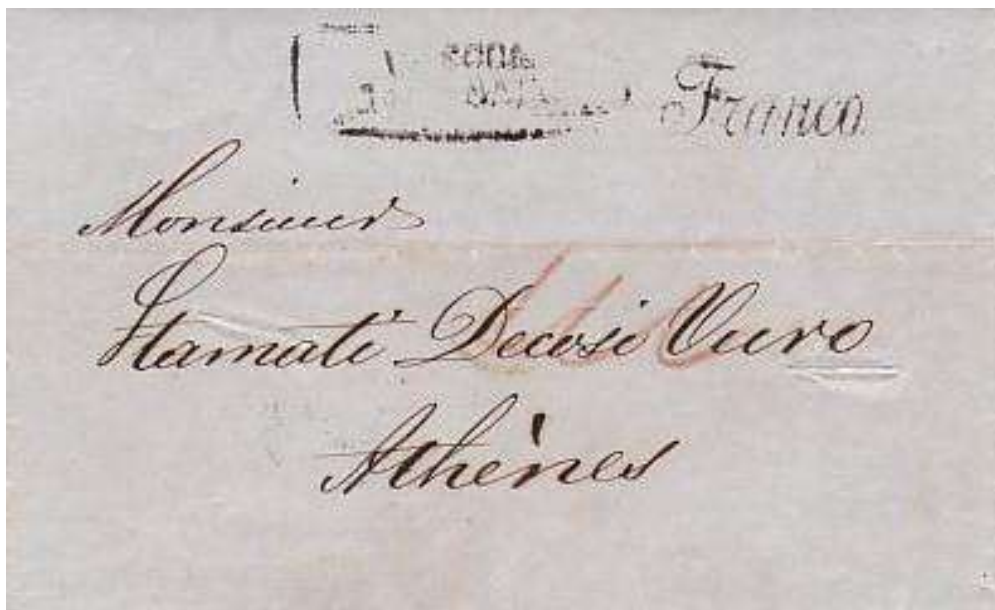 Franco
Monsieur
Stamati Decosi Vuro
Athènes